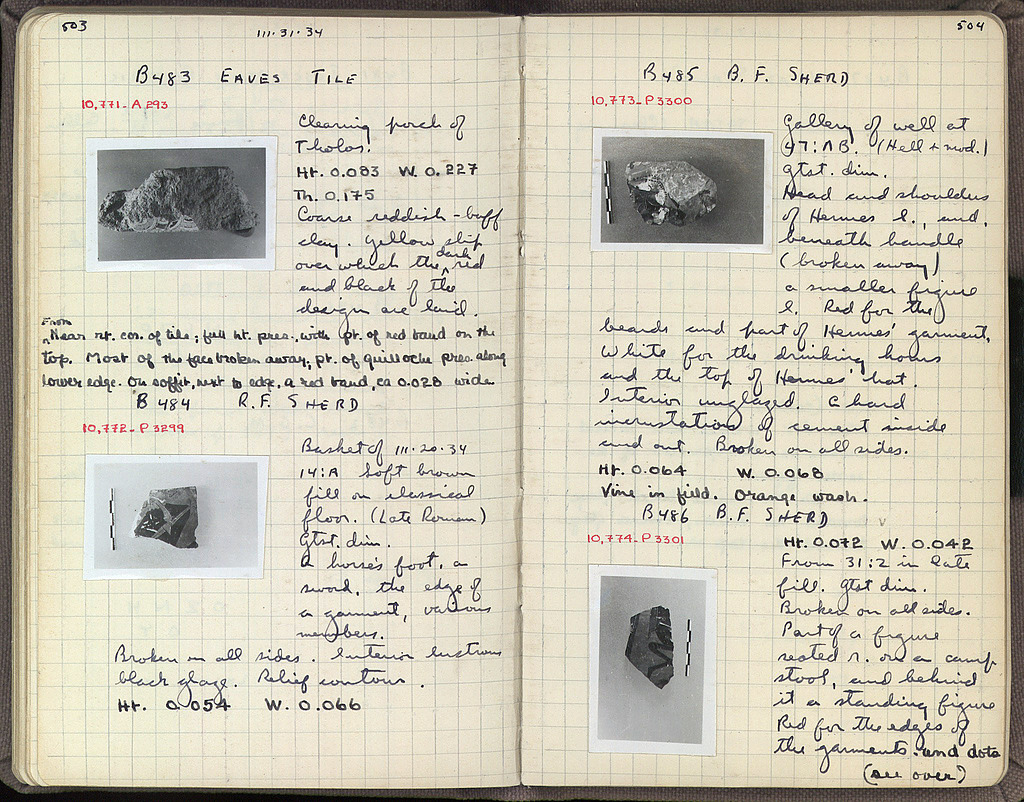 503
111·31·34
B483 EAVES TILE
10,771-A 293
Clearing porch of
Tholos.
Ht. 0.083 W. 0.227
Th. 0.175
Coarse reddish-buff
clay. Yellow slip
over which the dark red
and black of the
design are laid.
From Near rt. cor. of tile; full ht. pres., with pt. of red band on the
top. Most of the face broken away, pt. of guilloche pres. along
lower edge. On soffit, next to edge, a red band, ca 0.028 wide
B 484 R.F. SHERD
10,772-P 3299
Basket of 111·20·34
14:A Soft brown
fill on classical
floor. (Late Roman)
Gtst. dim.
A horse's foot, a
sword, the edge of
a garment, various
members.
Broken on all sides. Interior lustrous
black glaze. Relief contour.
Ht. 0.054 W. 0.066
504
B485 B.F. SHERD
10,773-P3300
Gallery of well at
47:ΛB. (Hell + mod.)
gtst. dim.
Head and shoulders
of Hermes l. and,
beneath handle
(broken away)
a smaller figure
l. Red for the
beards and part of Hermes' garment,
White for the drinking horns
and the top of Hermes' hat.
Interior unglazed. A hard
incrustation of cement inside
and out. Broken on all sides.
Ht. 0.064 W. 0.068
Vine in field. Orange wash.
B486 B.F. SHERD
10,774-P3301
Ht. 0.072 W. 0.042
From 31:2 in late
fill. Gtst dim.
Broken on all sides.
Part of a figure
seated r. on a camp
stool, and behind
it a standing figure
Red for the edges of
the garments and dots
(see over)